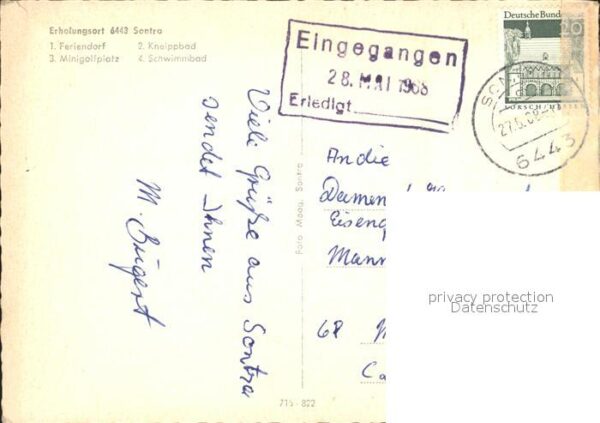 Erholungsort 6443 Sontra
1. Feriendorf 2. Kneippbad
3. Minigolfplatz 4. Schwimmbad
Eingegangen
28. MAI 1968
Erledigt
Deutsche Bund
20
LORSCH/HESSEN
27.5.68
6443
Viele Grüße aus Sontra
sendet Ihnen
M. Bügert
Foto Maag, Sontra
An die
Damen
Mann
68 M
Ca
715-822
privacy protection
Datenschutz